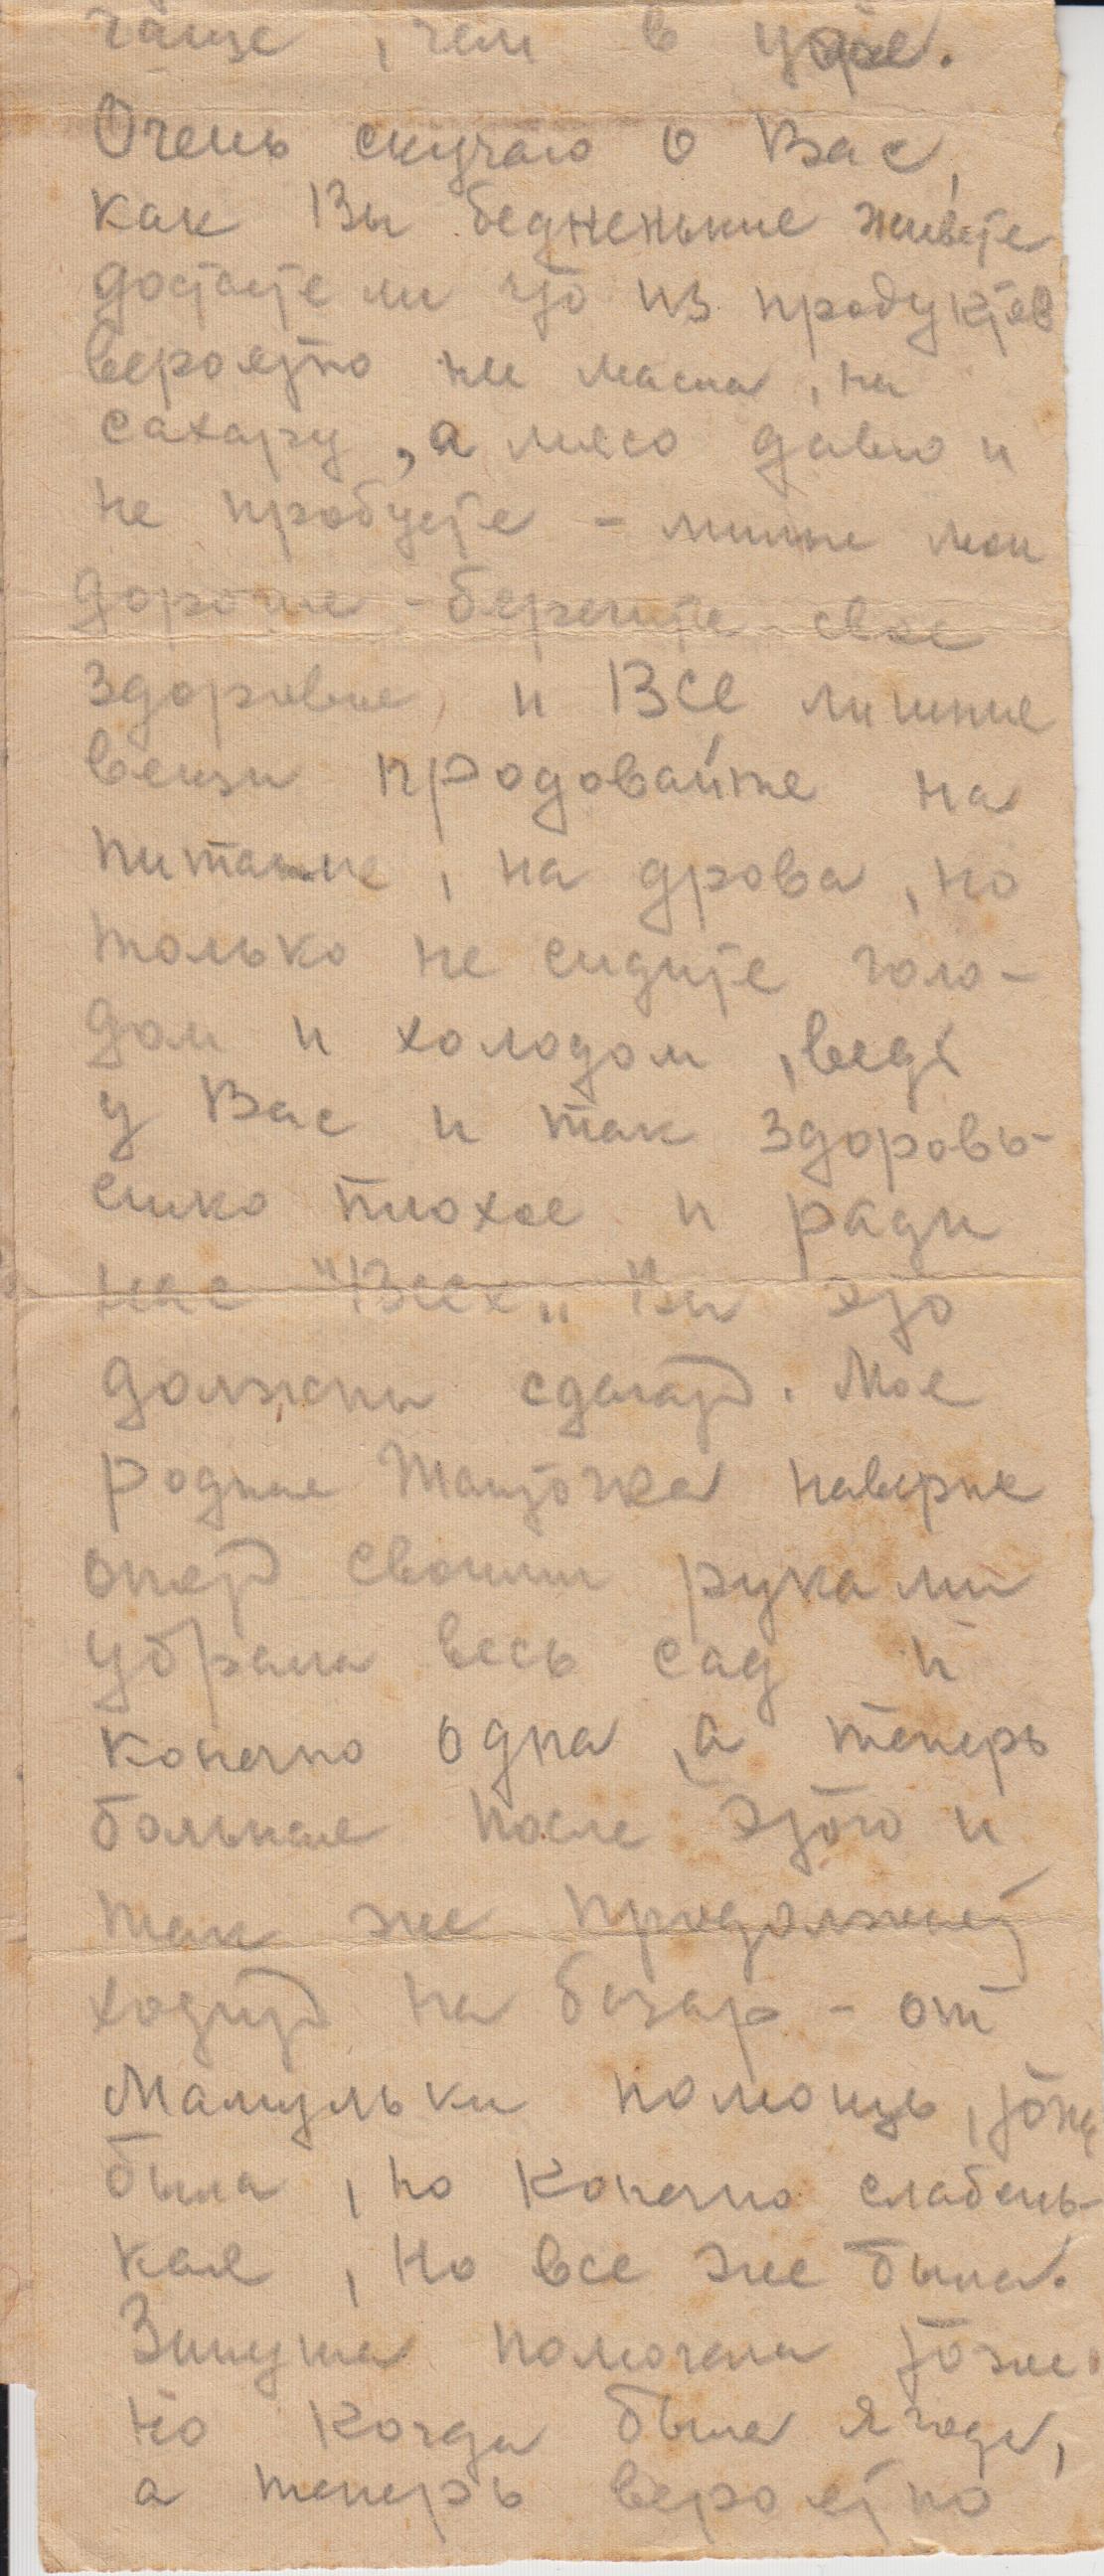 чаще, чем в
Очень скучаю о Вас,
как Вы бедненькие живете
достаете ли что из продуктов
вероятно ни масла, ни
сахару, а мясо давно и
не пробуете - милые мои
дорогие - берегите свое
здоровье, и ВСЕ лишние
вещи продовайте на
питание, на дрова, но
только не сидите голо-
дом и холодом, ведь
у Вас и так здоровь-
ишко плохое и ради
нас "Всех" Вы это
должны сделать. Мое
родные наверне
опять своими руками
убрала весь сад и
конечно одна, а теперь
больная после этого и
так же продолжает
ходить на базар - от
Мамульки помощь, тоже
была, но конечно слабень-
кая, но все же была.
Зинуша помогала тоже.
но когда были ягоды,
а теперь вероятно